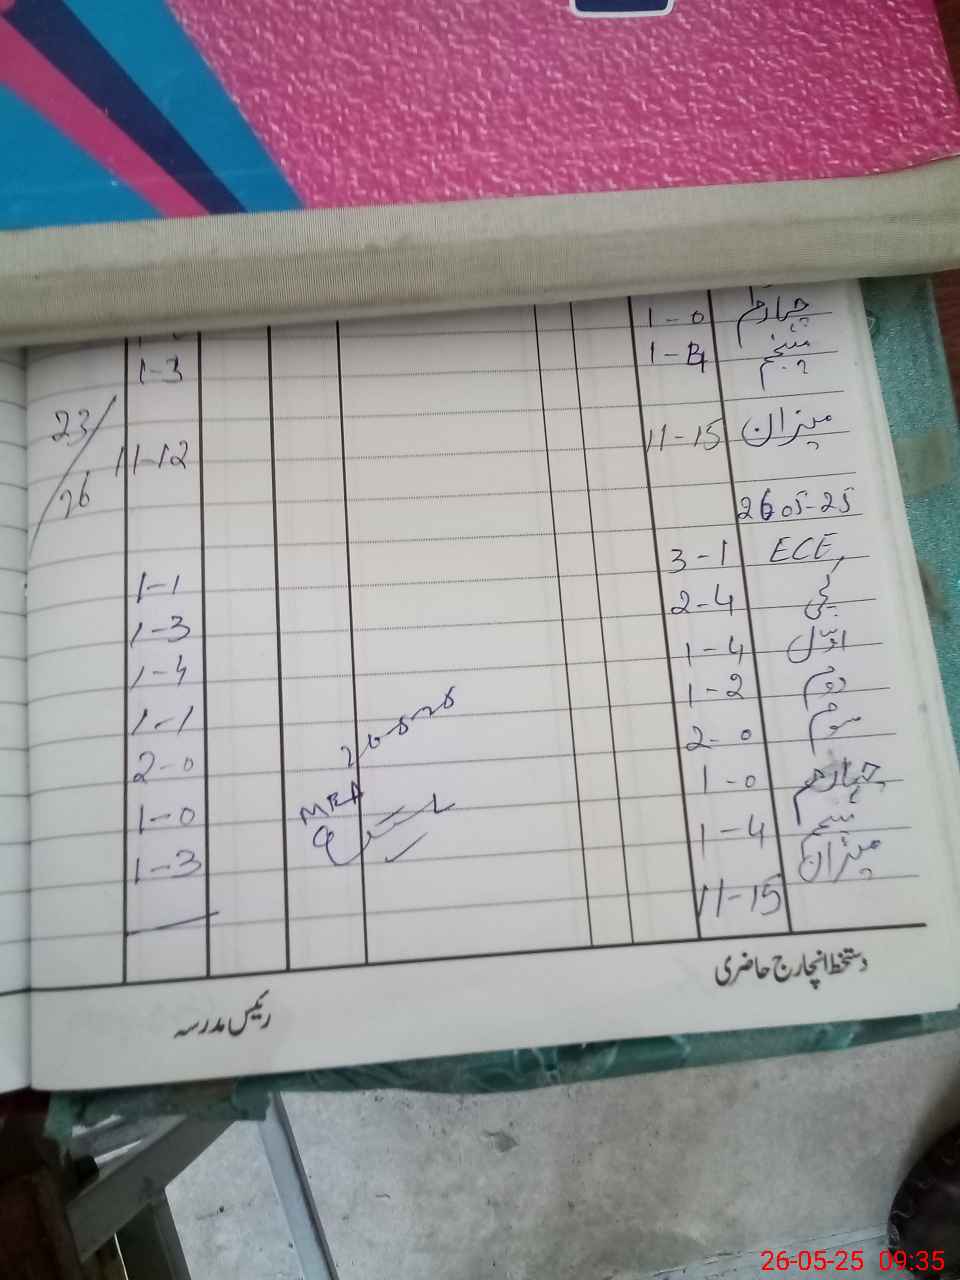 چہارم 1-0
پنجم 1-4 1-3
میزان 11-15 11-12 23/26
26-05-25
ECE 3-1 1-1
کچی 2-4 1-3
اوّل 1-4 1-4
دوم 1-2 1-1
سوم 2-0 2-0
چہارم 1-0 1-0
پنجم 1-4 1-3
میزان 11-15
MEA
دستخط انچارج حاضری
رئیس مدرسہ
26-05-25 09:35